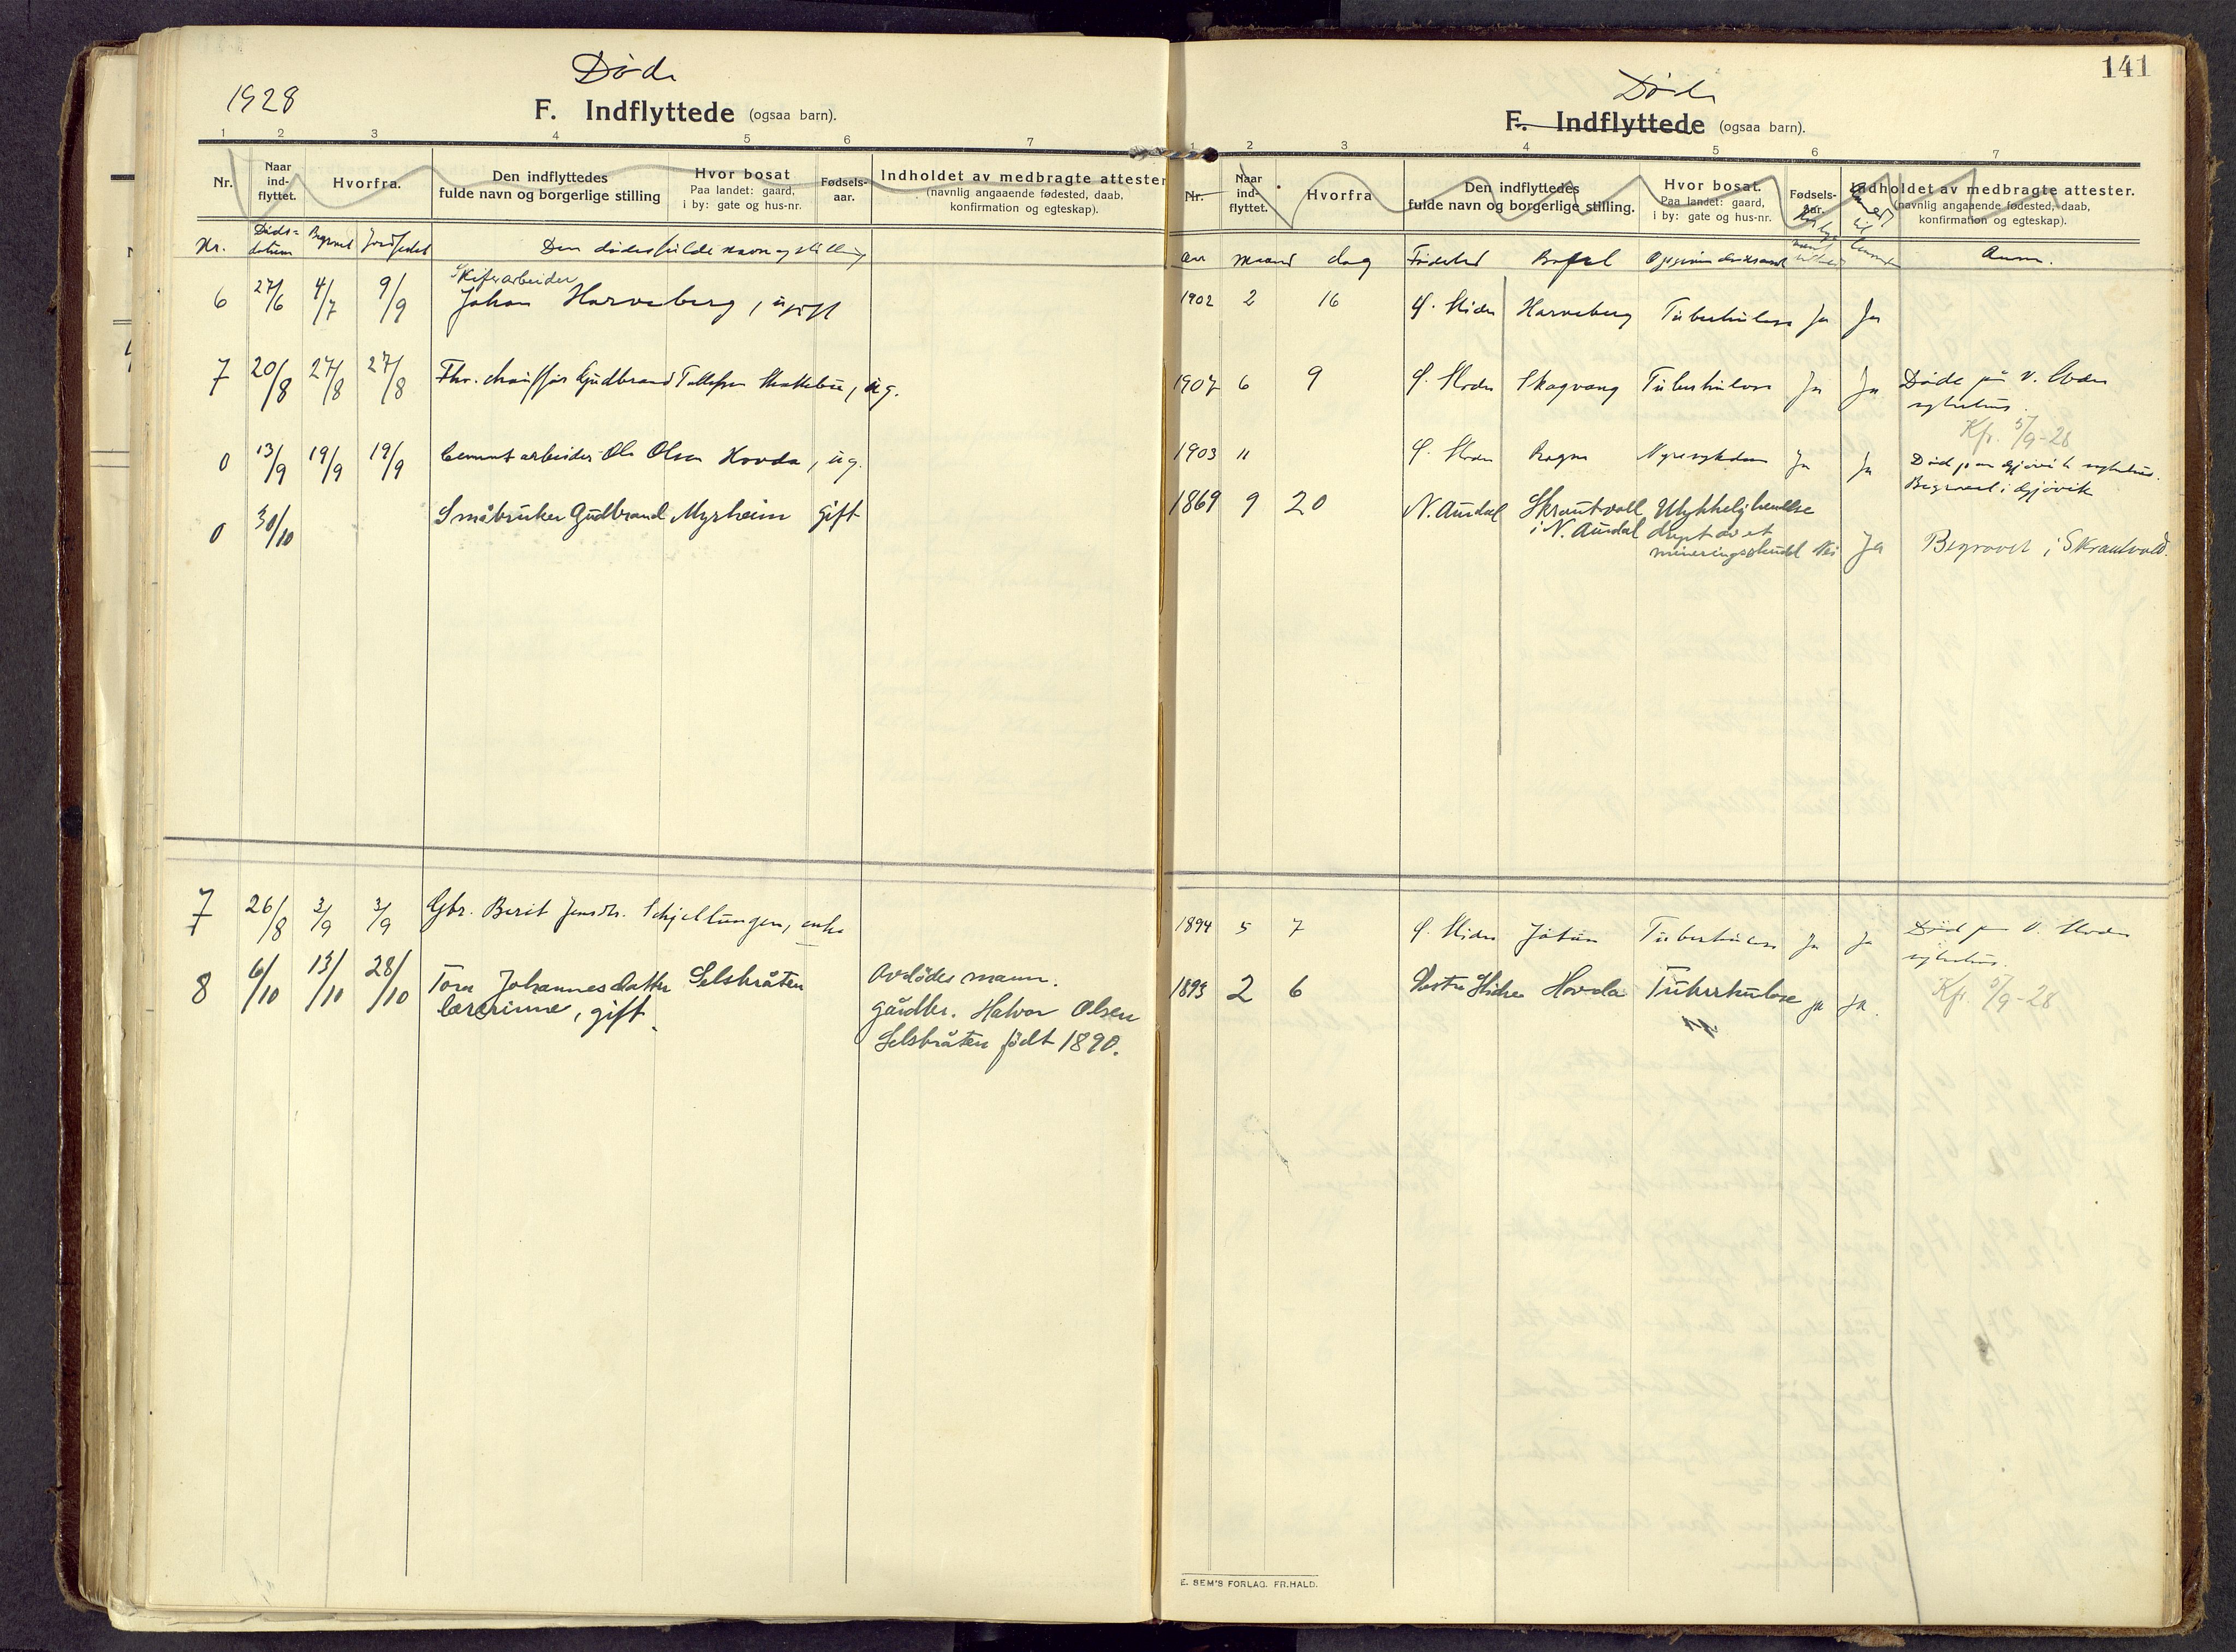 1928
Døde
F. Indflyttede (ogsaa barn).
1 2 3 4 5 6 7
Nr. Naar ind-flyttet. Hvorfra. Den indflyttedes fulde navn og borgerlige stilling Hvor bosat Paa landet: gaard, i by: gate og hus-nr. Fødsels-aar. Indholdet av medbragte attester (navnlig angaaende fødested, daab, konfirmation og egteskap).
Nr. Døds-datum Begravet Jordfestet Den dødes fulde navn og stilling
Skiferarbeider
6 27/6 4/7 9/9 Johan Harveberg, ugift
7 20/8 27/8 27/8 Fhv. chauffør Gudbrand Tollefsen, ug.
0 13/9 19/9 19/9 Cementarbeider Ole Olsen Hovda, ug.
0 30/10 Småbruker Gudbrand Myrheim gift
7 26/8 3/9 3/9 Gbr. Berit Jensdtr. Schjellungen, enke
8 6/10 13/10 28/10 Tora Johannesdatter Selsbråten Avdødes mann.
lærerinne, gift. gårdbr. Halvor Olsen
Selsbråten født 1890.
141
Døde
F. Indflyttede (ogsaa barn).
1 2 3 4 5 6 7
Nr. Naar ind-flyttet. Hvorfra Den indflyttedes fulde navn og borgerlige stilling. Hvor bosat. Paa landet: gaard, i by: gate og hus-nr. Fødsels-aar. Indholdet av medbragte attester. (navnlig angaaende fødested, daab, konfirmation og egteskap).
Aar Maaned dag Fødested Bopæl Opgiven dødsaarsak Anm.
1902 2 16 Ø. Slidre Harveberg Tuberkulose Ja Ja
1907 6 9 Ø. Slidre Skogvang Tuberkulose Ja Ja Døde på V. Slidre
sykehus.
Kfr. 5/9-28
1903 11 Ø. Slidre Rogne Nyresykdom Ja Ja Død på Gjøvik sykehus.
Begravet i Gjøvik
1869 9 20 N. Aurdal Skrautvoll Ulykkelighendelse
i N. Aurdal drept av et
mineringsskudd Nei Ja Begravet i Skrautvold.
1894 5 7 Ø. Slidre Jotun Tuberkulose Ja Ja Død på V. Slidre
sykehus.
1893 2 6 Vestre Slidre Hovda Tuberkulose ja ja. Kfr. 5/9-28
E. SEM'S FORLAG. FR.HALD.